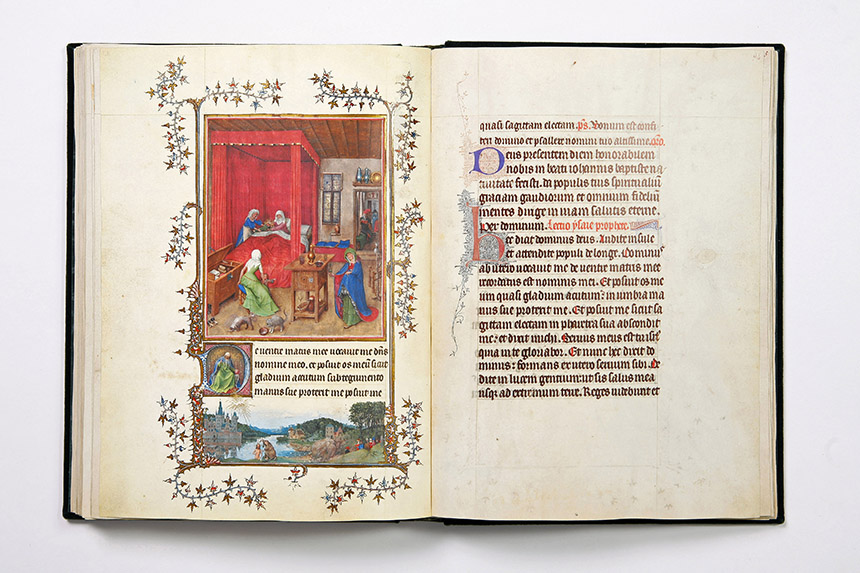 De ventre matris mee vocavit me dns
nomine meo. et posuit os meu sicut
gladium acutum sub tegumento
manus sue protexit me posuit me
quasi sagittam electam. ps. Bonum est confi
teri domino et psallere nomini tuo altissime. oro.
Deus presentem diem honorabilem
nobis in beati iohannis baptiste na
tivitate fecisti. da populis tuis spiritualiu
gratiam gaudiorum et omnium fideliu
mentes dirige in viam salutis eterne.
Per dominum. Lectio ysaie prophete.
Hec dicit dominus deus. Audite insule
et attendite populi de longe. Dominus
ab utero vocavit me de ventre matris mee
recordatus est nominis mei. Et posuit os me
um quasi gladium acutum: in umbra ma
nus sue protexit me. Et posuit me sicut sa
gittam electam in pharetra sua abscondit
me: et dixit michi. Servus meus es tu isrl
quia in te gloriabor. Et nunc hec dixit do
minus: formans ex utero servum sibi. De
dite in lucem gentium: ut sis salus mea
usque ad extremum terre. Reges videbunt et